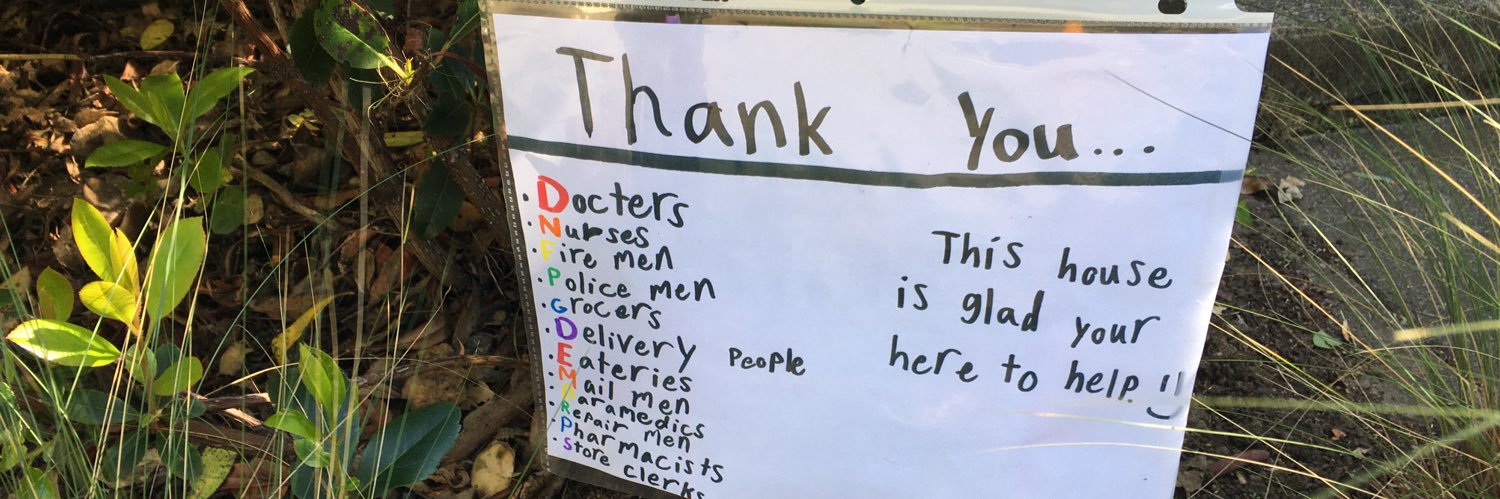 Thank You...
· Docters
· Nurses
· Fire men
· Police men
· Grocers
· Delivery People
· Eateries
· Mail men
· Paramedics
· Repair men
· Pharmacists
· Store clerks
This house
is glad your
here to help!!